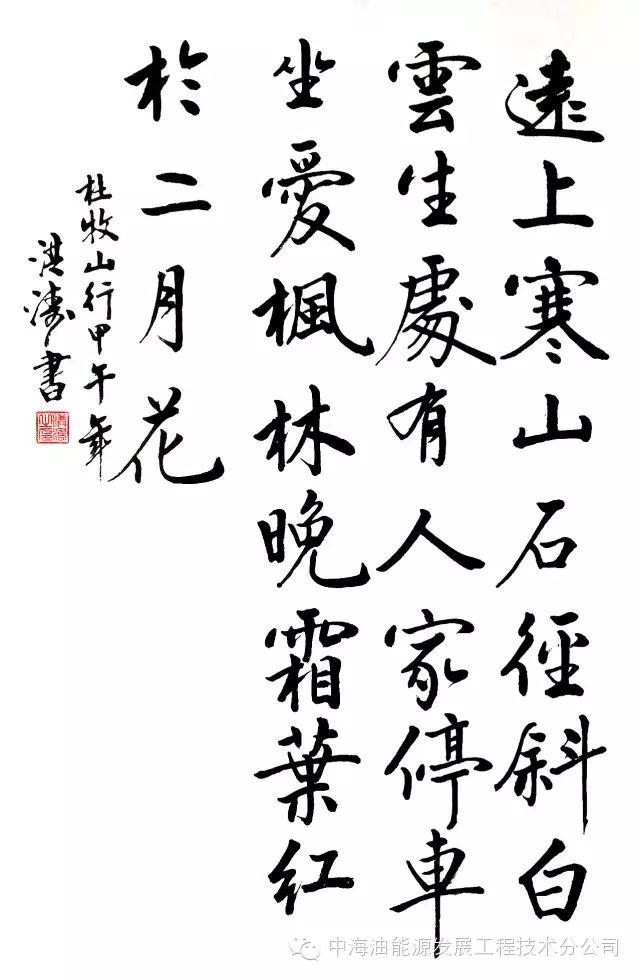 遠上寒山石徑斜白
雲生處有人家停車
坐愛楓林晚霜葉红
於二月花
杜牧山行甲午年
洪濤書
中海油能源发展工程技术分公司